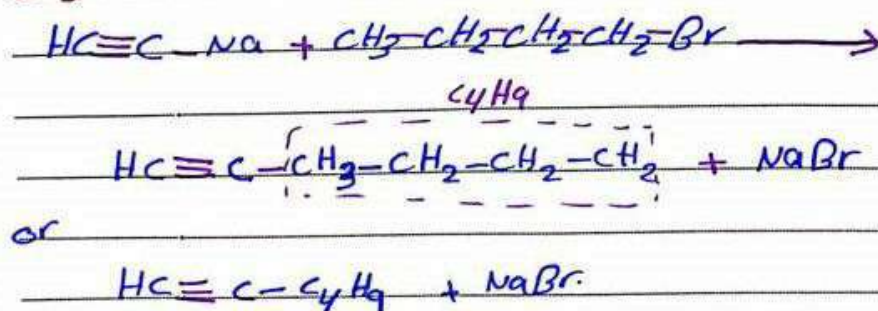 HC≡C-Na + CH3-CH2-CH2-CH2-Br ⟶
C4H9
HC≡C-CH3-CH2-CH2-CH2 + NaBr
or
HC≡C-C4H9 + NaBr.